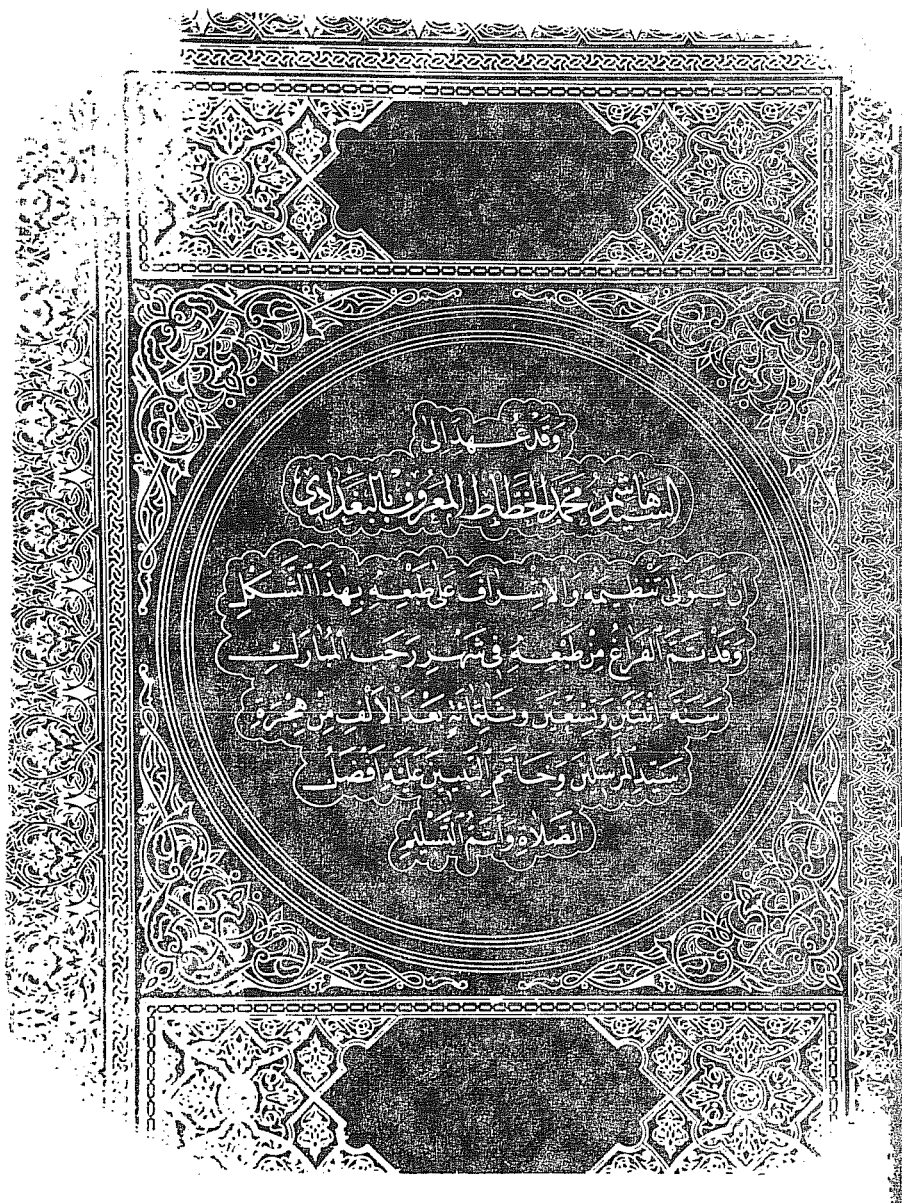 وَقَدْ عُهِدَ إِلَىٰ
السيد هاشم محمد الخطاط المعروف بالبغدادي
ان يتولى تنظيمه والاشراف على طبعه بهذا الشكل
وقد تم الفراغ من طبعه في شهر رجب المبارك
سنة اثنتين وتسعين وثلثمائة بعد الألف من هجرة
سيد المرسلين وخاتم النبيين عليه افضل
الصلاة واتم التسليم